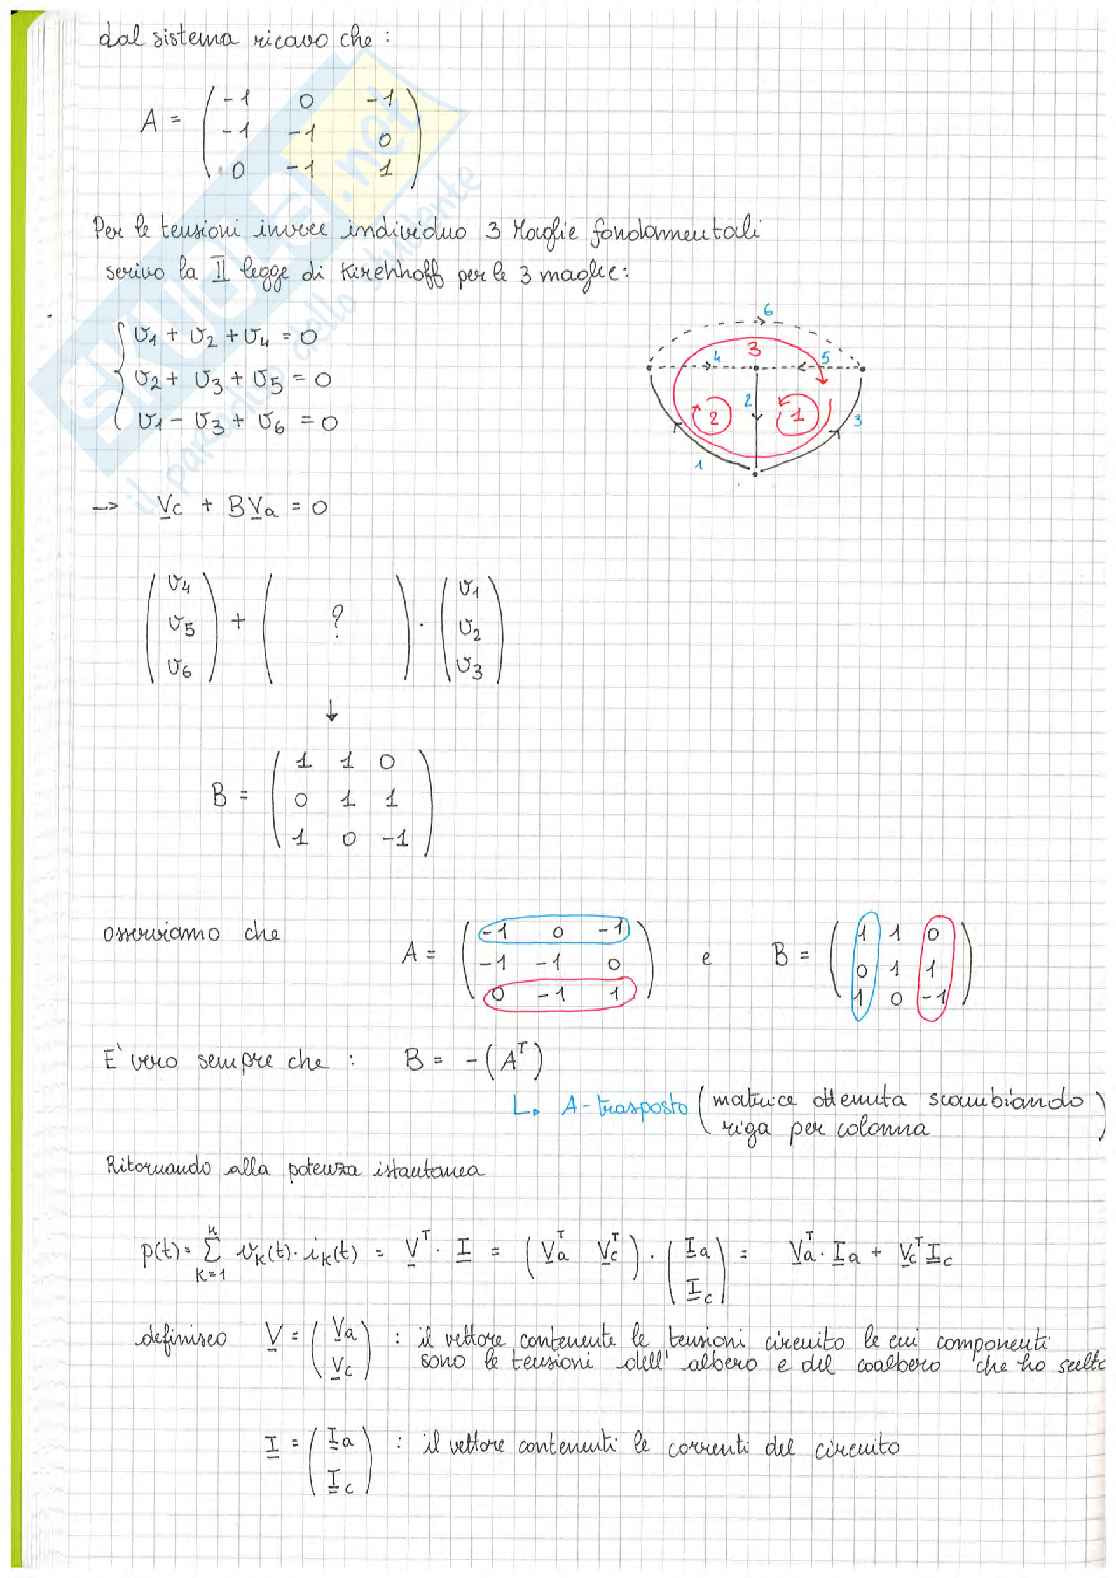 dal sistema ricavo che :
A = ( -1 0 -1
-1 -1 0
0 -1 1 )
Per le tensioni invece individuo 3 Maglie fondamentali
scrivo la II legge di Kirchhoff per le 3 maglie :
v1 + v2 + v4 = 0
v2 + v3 + v5 = 0
v1 - v3 + v6 = 0
6
4 3 5
2 2 1 3
1
→ Vc + BVa = 0
( v4 v5 v6 ) + ( ? ) · ( v1 v2 v3 )
↓
B = ( 1 1 0
0 1 1
1 0 -1 )
osserviamo che A = ( -1 0 -1 e B = ( 1 1 0
-1 -1 0 0 1 1
0 -1 1 ) 1 0 -1 )
E' vero sempre che : B = -(A^T)
L. A-trasposto ( matrice ottenuta scambiando
riga per colonna )
Ritornando alla potenza istantanea
p(t) = Σ_{K=1}^{n} vk(t) · ik(t) = V^T · I = ( Va^T Vc^T ) · ( Ia Ic ) = Va^T · Ia + Vc^T Ic
definisco V = ( Va Vc ) : il vettore contenente le tensioni circuito le cui componenti
sono le tensioni dell' albero e del coalbero che ho scelto
I = ( Ia Ic ) : il vettore contenenti le correnti del circuito
SKUOLA.net